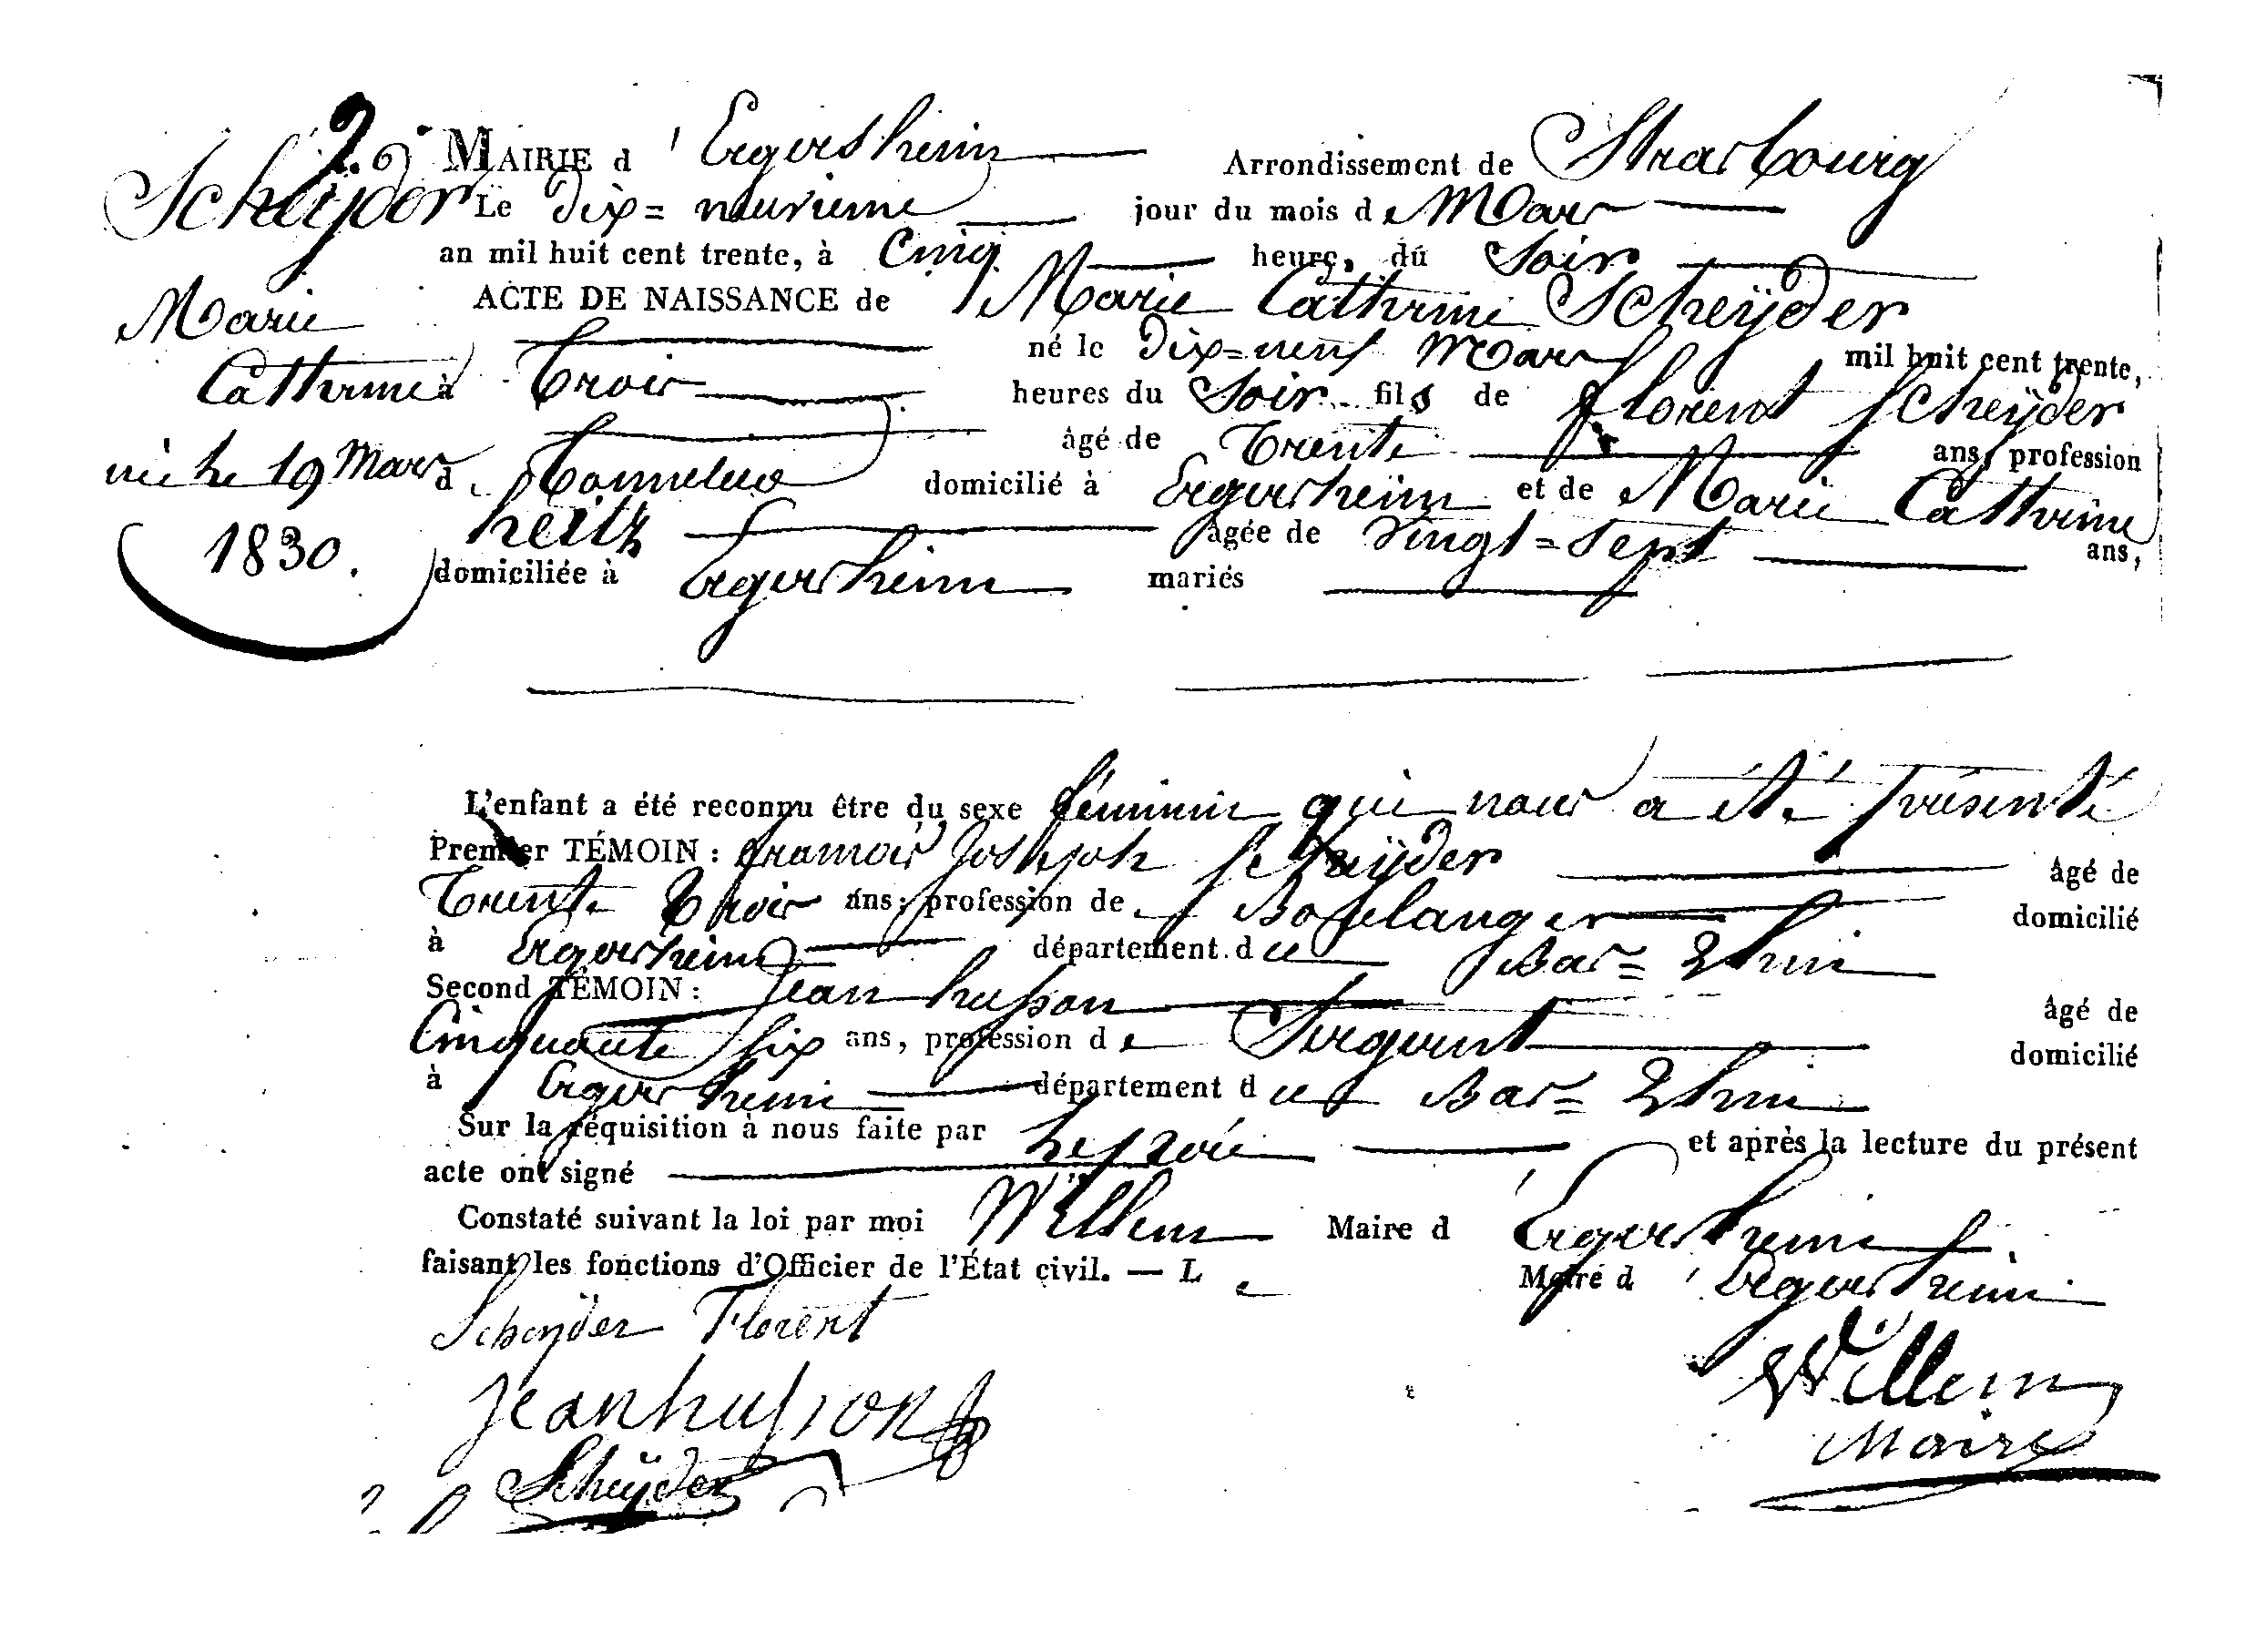 2.
MAIRIE d'Ergersheim Arrondissement de Strasbourg
Scheÿder
Le dix=neuvieme jour du mois de Mars
an mil huit cent trente, à Cinq heure, du Soir
Marie
ACTE DE NAISSANCE de Marie Catherine Scheÿder
né le dix=neuf Mars mil huit cent trente,
Catherine
à Trois heures du Soir fils de florent Scheÿder
âgé de Trente ans, profession
née le 19 Mars
de Tonnelier domicilié à Ergersheim et de Marie Catherine
1830.
heitz âgée de Vingt=Sept ans,
domiciliée à Ergersheim mariés
L'enfant a été reconnu être du sexe féminin qui nous a été présenté
Premier TÉMOIN : francois Joseph Scheÿder âgé de
Trente Trois ans, profession de Boulanger domicilié
à Ergersheim département du Bas=Rhin
Second TÉMOIN : Jean husson âgé de
Cinquante Six ans, profession de Sergent domicilié
à Ergersheim département du Bas=Rhin
Sur la réquisition à nous faite par le père et après la lecture du présent
acte ont signé
Constaté suivant la loi par moi Willem Maire d'Ergersheim
faisant les fonctions d'Officier de l'État civil. — Le Maire d'Ergersheim
Scheÿder Florent
Willem
Jean husson
Maire
Scheÿder